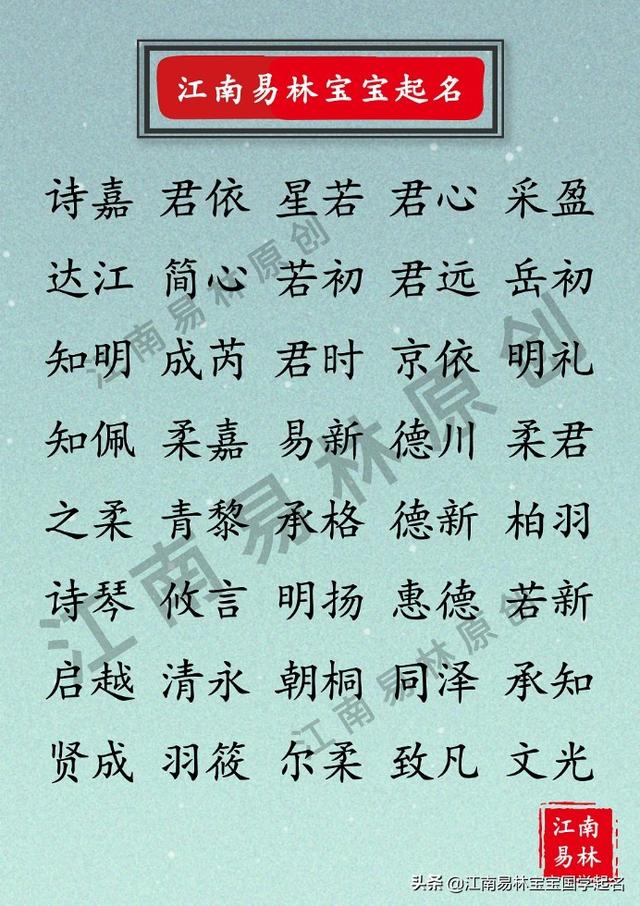 江南易林宝宝起名
诗嘉 君依 星若 君心 采盈
达江 简心 若初 君远 岳初
知明 成芮 君时 京依 明礼
知佩 柔嘉 易新 德川 柔君
之柔 青黎 承格 德新 柏羽
诗琴 攸言 明扬 惠德 若新
启越 清永 朝桐 同泽 承知
贤成 羽筱 尔柔 致凡 文光
江南易林原创
江南易林原创
江南易林原创
江南
易林
头条 @江南易林宝宝国学起名